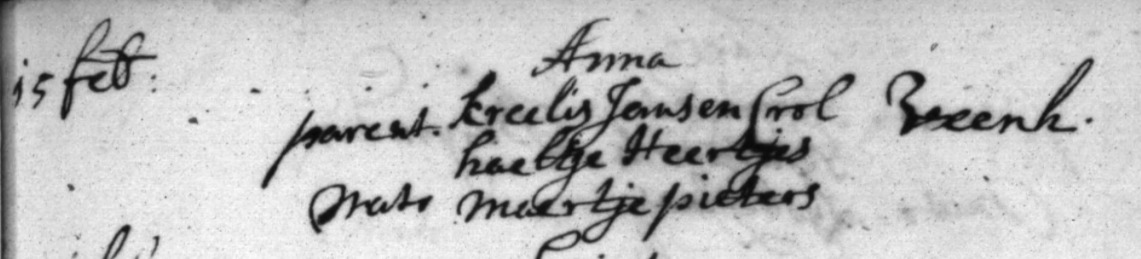 15 feb:
Anna
parent. kreelis Jansen Crol Veenh.
haeltje Heertjes
Mater maertje pieters